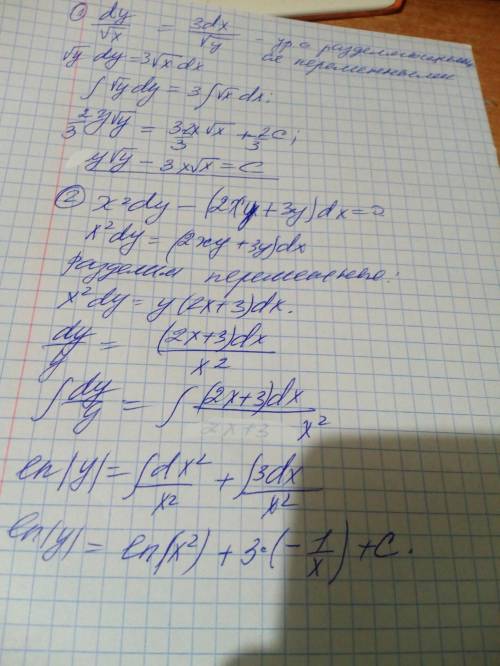 ① dy/√x = 3dx/√y - ур. с разделяющими
ся переменными
√y dy = 3√x dx
∫√y dy = 3∫√x dx;
2/3 y√y = 3·2/3 x√x + 2/3 C;
y√y - 3x√x = C
② x²dy - (2xy + 3y)dx = 0
x²dy = (2xy + 3y)dx
Разделим переменные:
x²dy = y(2x+3)dx.
dy/y = (2x+3)dx/x²
∫dy/y = ∫(2x+3)dx/x²
ln|y| = ∫dx²/x² + ∫3dx/x²
ln|y| = ln(x²) + 3·(-1/x) + C.